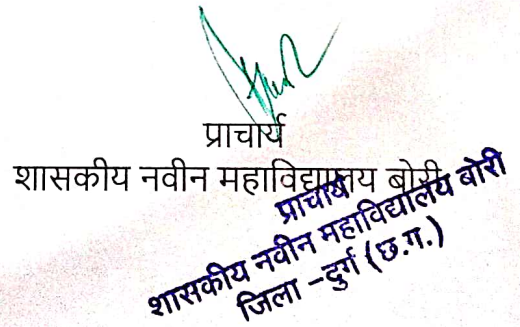 प्राचार्य
शासकीय नवीन महाविद्यालय बोरी
प्राचार्य
शासकीय नवीन महाविद्यालय बोरी
जिला – दुर्ग (छ.ग.)